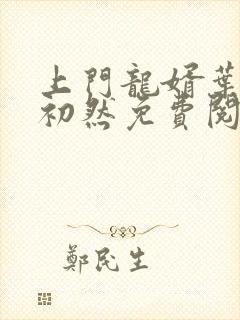 上門龍婿葉
初然免費閱
鄭民生